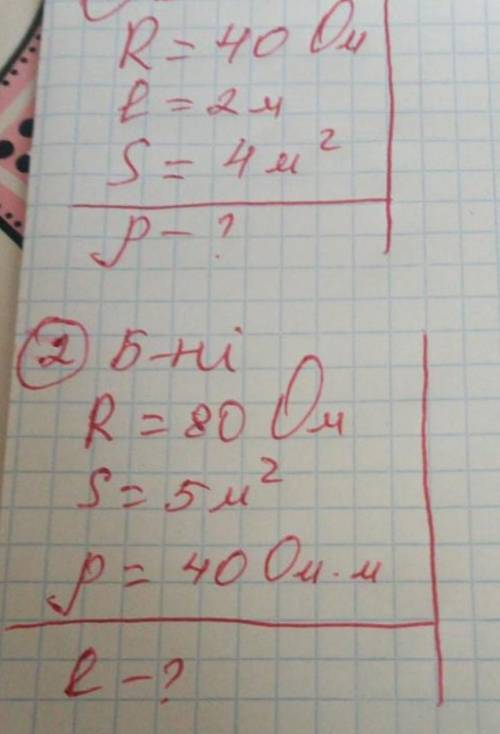 R = 40 Ом
l = 2 м
S = 4 м²
ρ - ?
2 Б-ні
R = 80 Ом
S = 5 м²
ρ = 40 Ом·м
l - ?